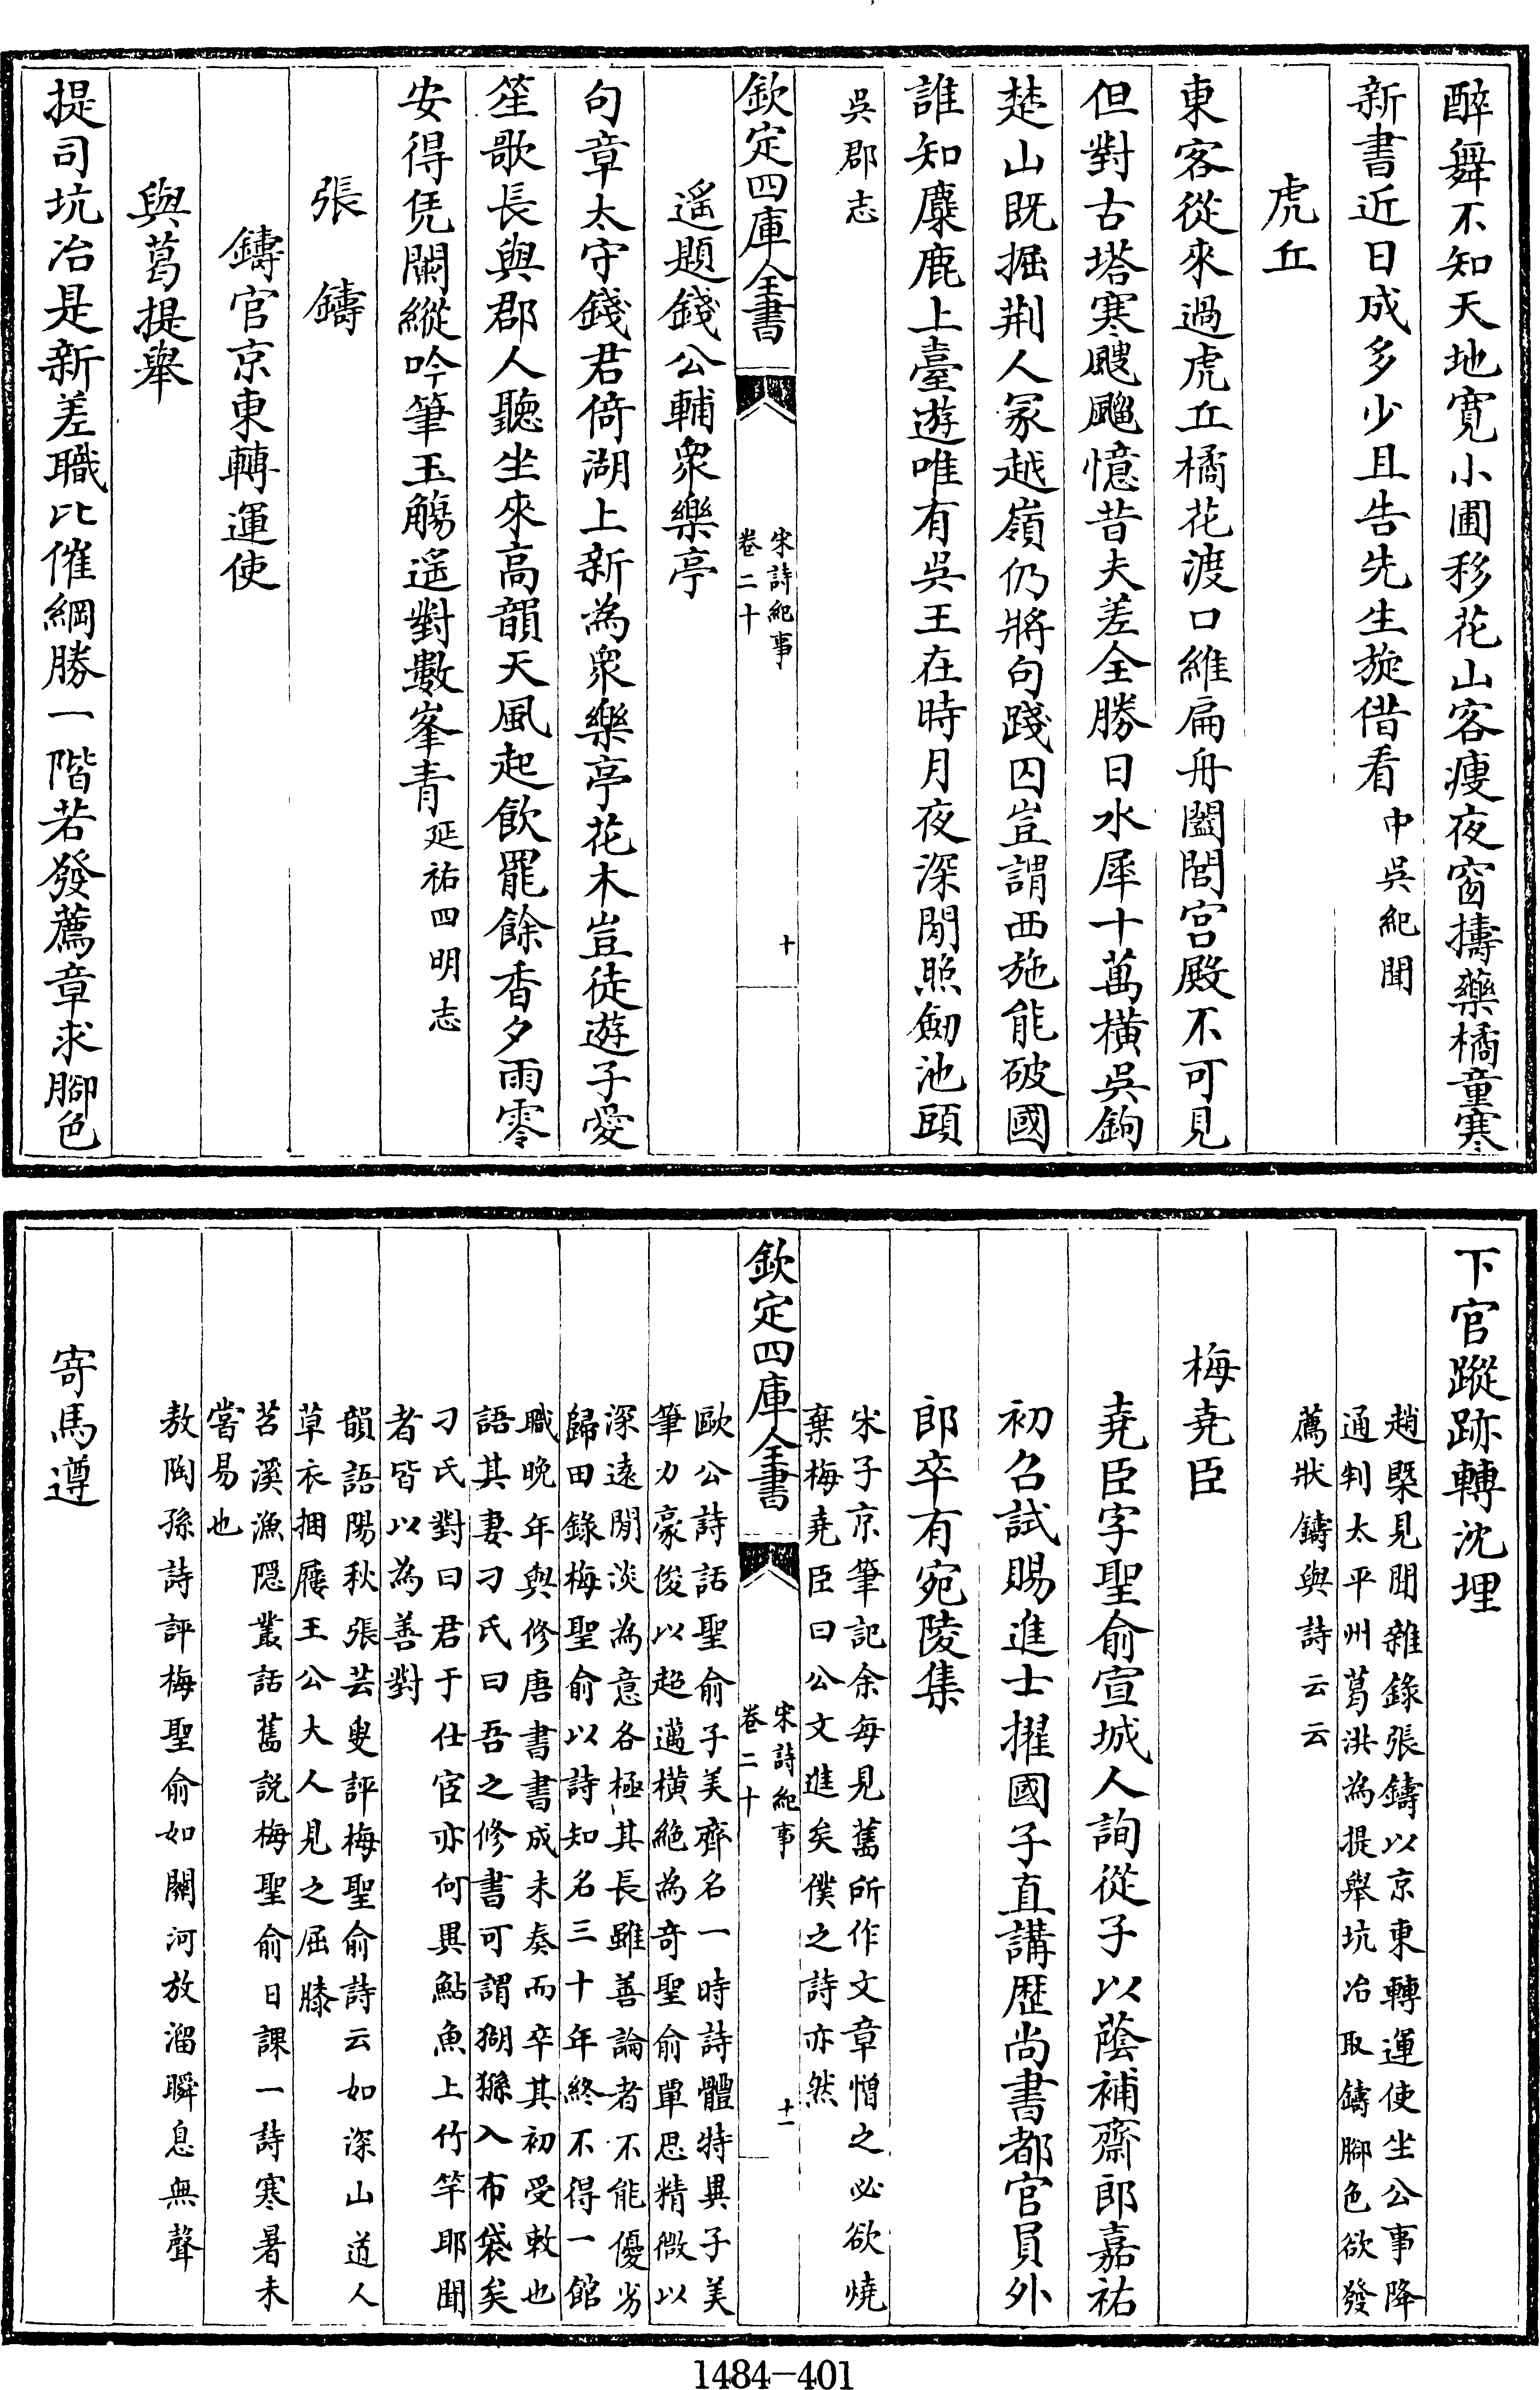 醉舞不知天地寬小圃移花山客瘦夜窗擣藥橘童寒
新書近日成多少且告先生旋借看中吳紀聞
虎丘
東客從來過虎丘橘花渡口維扁舟闔閭宫殿不可見
但對古塔寒颼飀憶昔夫差全勝日水犀十萬橫吳鉤
楚山既掘荆人冢越嶺仍將句踐囚豈謂西施能破國
誰知麋鹿上臺遊唯有吳王在時月夜深閒照劒池頭
吳郡志
欽定四庫全書
宋詩紀事
卷二十
十
遥題錢公輔衆樂亭
句章太守錢君倚湖上新為衆樂亭花木豈徒遊子愛
笙歌長與郡人聽坐來高韻天風起飲罷餘香夕雨零
安得凭闌縱吟筆玉觴遥對數峯青延祐四明志
張鑄
鑄官京東轉運使
與葛提舉
提司坑冶是新差職比催綱勝一階若發薦章求腳色
下官蹤跡轉沈埋
趙㮣見聞雜錄張鑄以京東轉運使坐公事降
通判太平州葛洪為提舉坑冶取鑄腳色欲發
薦狀鑄與詩云云
梅堯臣
堯臣字聖俞宣城人詢從子以蔭補齋郎嘉祐
初召試賜進士擢國子直講歷尚書都官員外
郎卒有宛陵集
宋子京筆記余每見舊所作文章憎之必欲燒
棄梅堯臣曰公文進矣僕之詩亦然
欽定四庫全書
宋詩紀事
卷二十
十一
歐公詩話聖俞子美齊名一時詩體特異子美
筆力豪俊以超邁橫絶為奇聖俞單思精微以
深遠閒淡為意各極其長雖善論者不能優劣
歸田錄梅聖俞以詩知名三十年終不得一館
職晚年與修唐書書成未奏而卒其初受敕也
語其妻刁氏曰吾之修書可謂猢猻入布袋矣
刁氏對曰君于仕宦亦何異鮎魚上竹竿耶聞
者皆以為善對
韻語陽秋張芸叟評梅聖俞詩云如深山道人
草衣捆屨王公大人見之屈膝
苕溪漁隱叢話舊説梅聖俞日課一詩寒暑未
嘗易也
敖陶孫詩評梅聖俞如關河放溜瞬息無聲
寄馬遵
1484-401